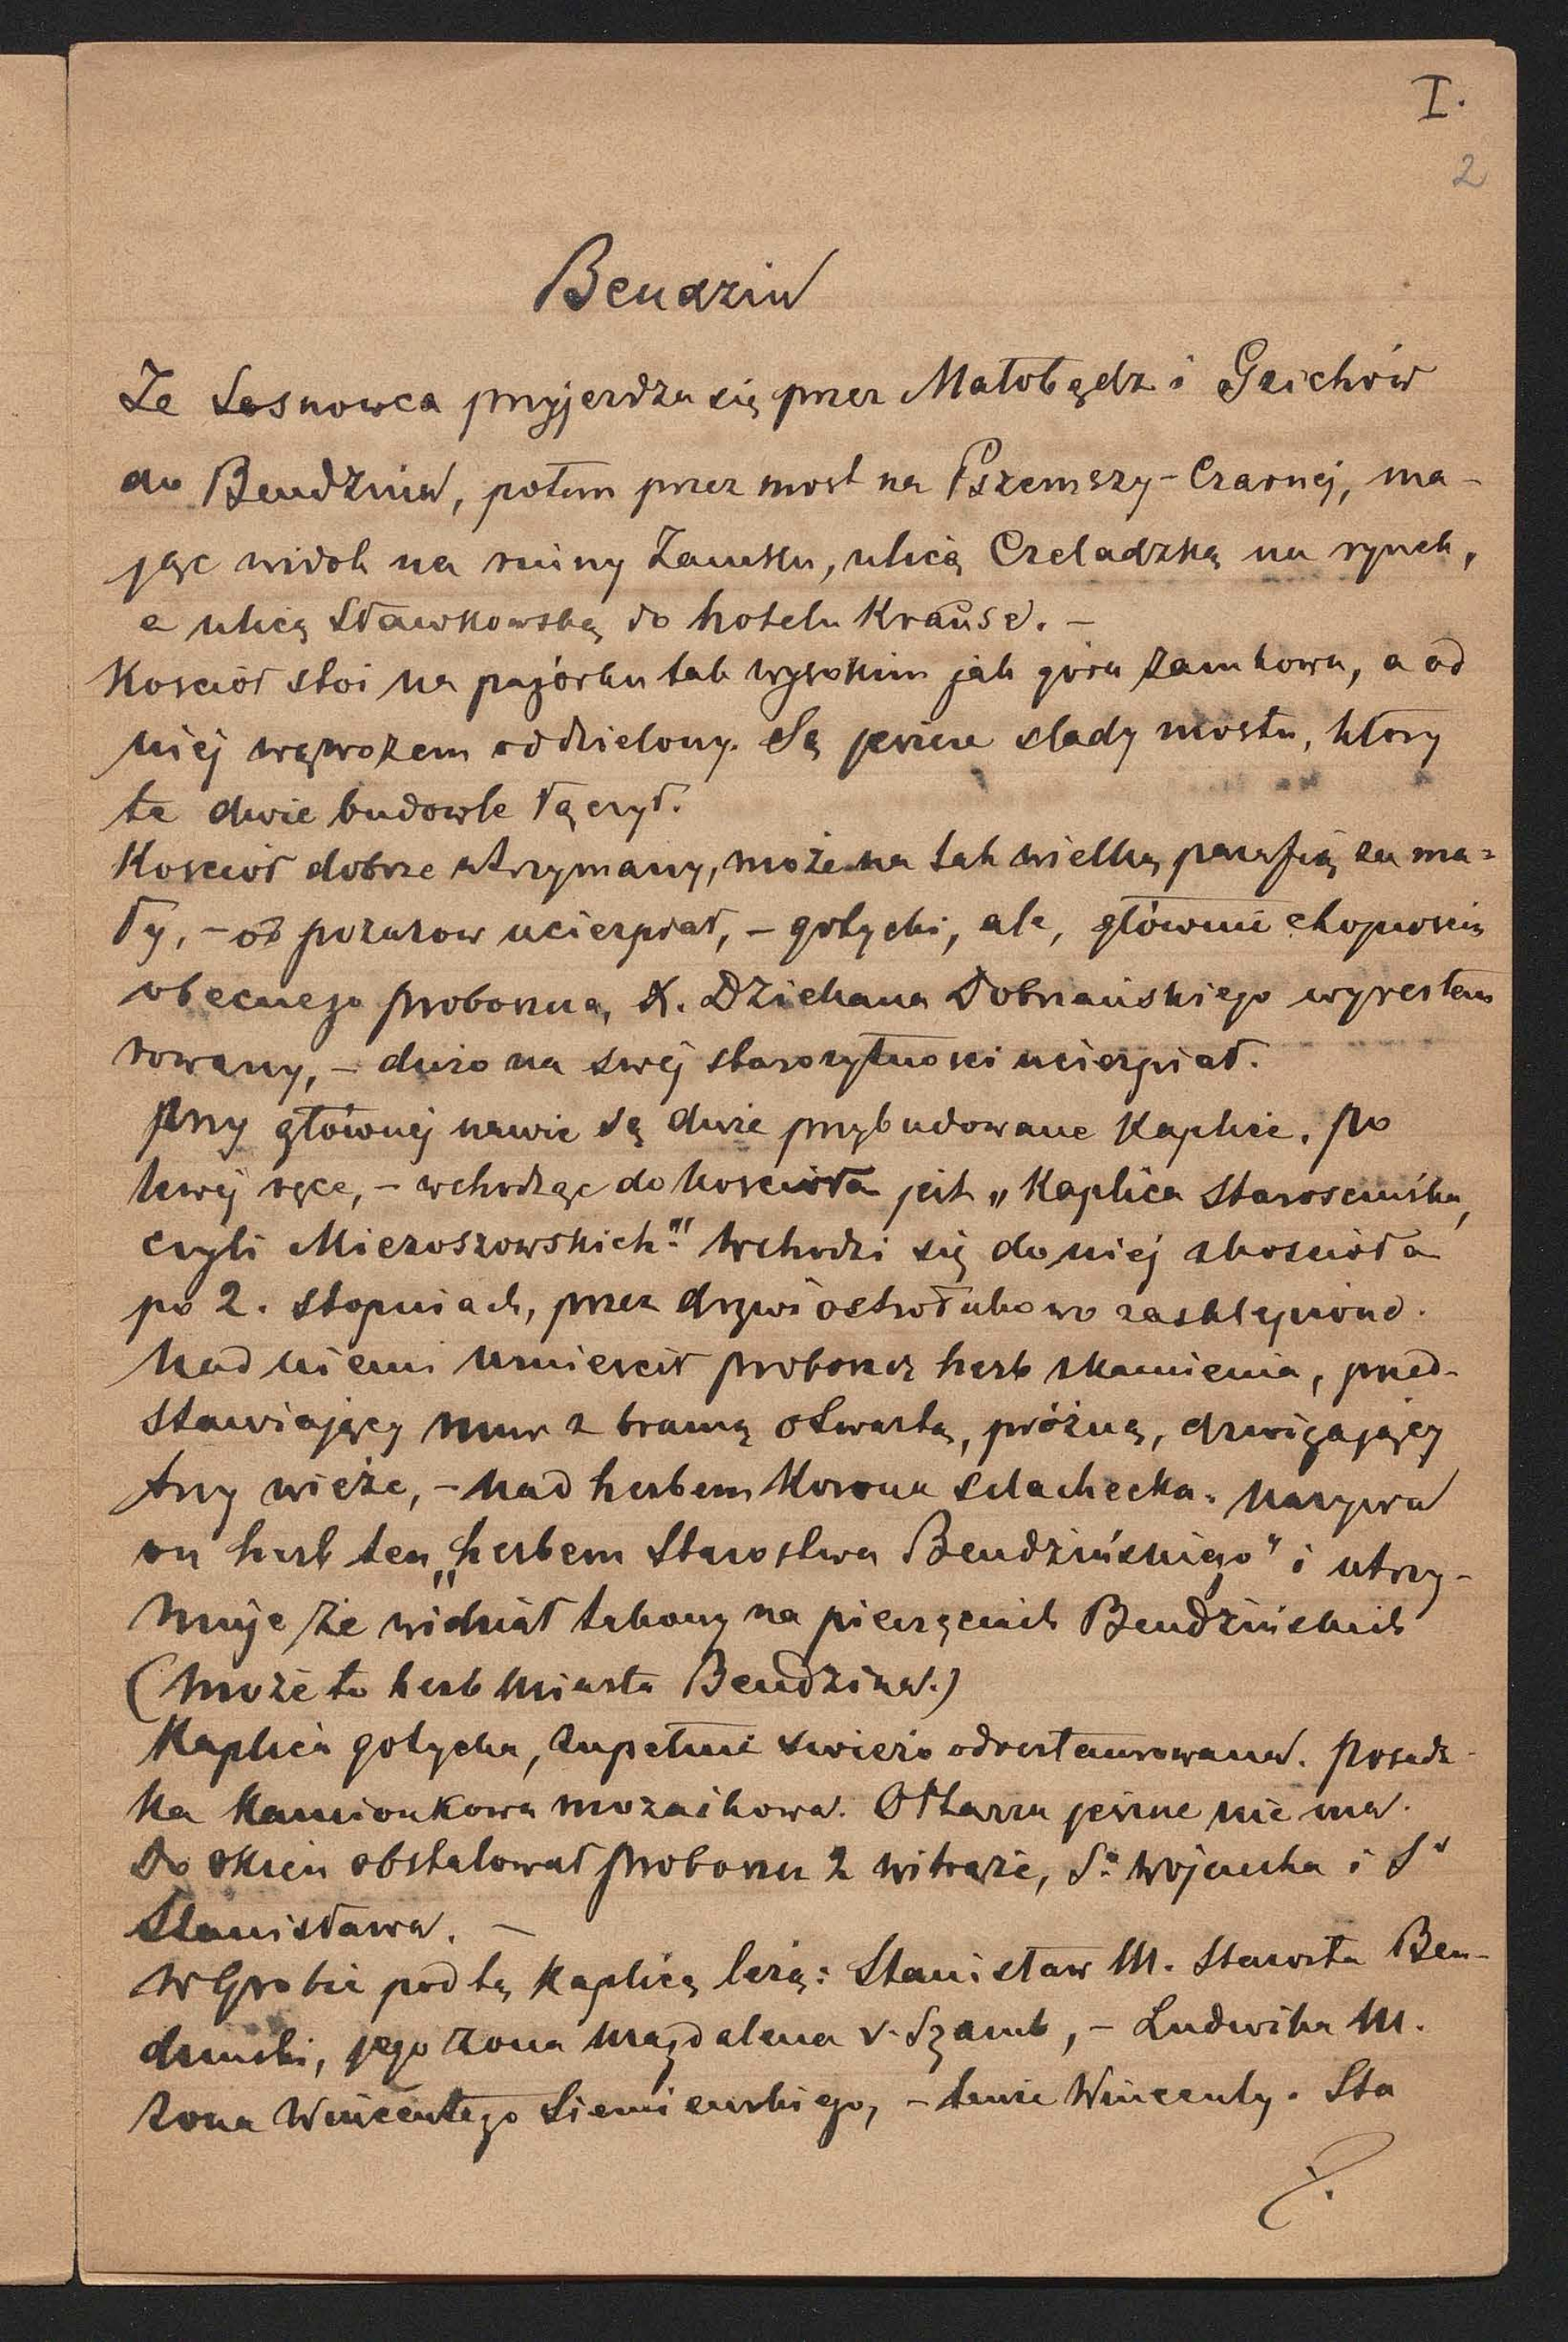 I.
2
Bendzin
Ze Sosnowca przyjerdza się przez Małobądz i Gzichów
do Bendzina, potem przez most na Pszemszy-Czarnej, ma-
jąc widok na ruiny Zamku, ulicą Czeladzką na rynek,
a ulicą Sławkowską do hotelu Krause. –
Kosciół stoi na pagórku tak wysokim jak góra zamkowa, a od
niej wąwozem oddzielony. Są jeszcze slady mostu, który
te dwie budowle łączył.
Kosciół dobrze utrzymany, może na tak wielką parafią za ma=
ły, – od pozarow ucierpiał, – gotycki, ale, głównie
obecnego proboszcza, X. Dziekana Dobrzańskiego wyrestau
rowany, – dużo na swej starozytnosci ucierpiał.
Przy głównej nawie są dwie przybudowane Kaplice. Po
lewej ręce, – wchodząc do koscioła jest „Kaplica Staroscińska,
czyli Mieroszowskich". Wchodzi się do niej z koscioła
po 2. stopniach, przez drzwi ostrołukowo zasklepione.
Nad niemi umiescił proboszcz herb z kamienia, przed-
stawiający mur z bramą otwartą, próżną, dzwigający
trzy wieże, – nad herbem Korona szlachecka. Nazywa
on herb ten „herbem Starostwa Bendzińskiego" i utrzy-
muje że widział takowy na pieczęciach Bendzińskich
(Może to herb miasta Bendzina.)
Kaplica gotycka, zupełnie swieżo odrestaurowana. Posadz-
ka Kamionkowa mozaikowa. Ołtarza jeszcze nie ma.
Do okien obstalował proboszcz 2 witraże, Sº Wojciecha i Sº
Stanisława. –
W Grobie pod tą Kaplicą leżą: Stanisław M. Starosta Ben-
dzinski, jego zona Magdalena v. Szamb, – Ludwika M.
zona Wincentego Siemienskiego, – tenże Wincenty. Sta